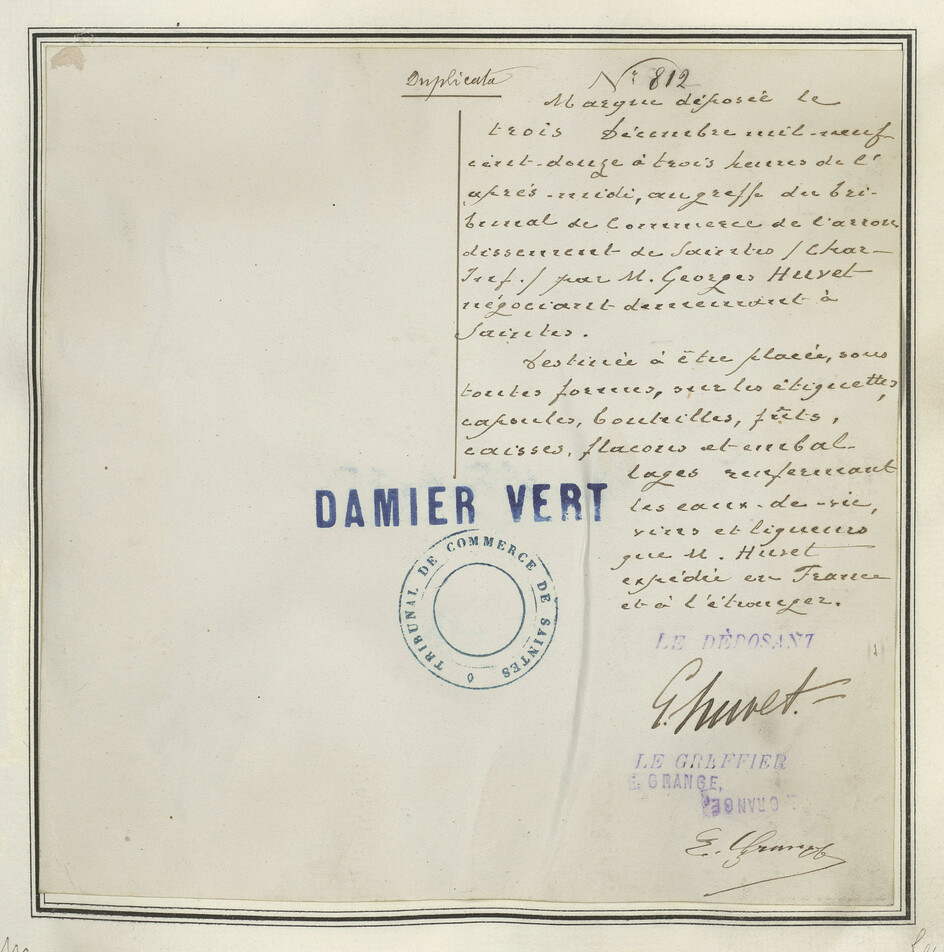 Duplicata
N° 812
Marque déposée le
trois Décembre mil-neuf
cent-douze à trois heures de l'
après-midi, au greffe du tri-
bunal de Commerce de l'arron
dissement de Saintes (Char-
Inf.) par M. Georges Huvet
négociant demeurant à
Saintes.
Destinée à être placée, sous
toutes formes, sur les étiquettes,
capsules, bouteilles, fûts,
caisses, flacons et embal-
lages renfermant
les eaux-de-vie,
vins et liqueurs
que M. Huvet
expédie en France
et à l'étranger.
DAMIER VERT
TRIBUNAL DE COMMERCE DE SAINTES
LE DÉPOSANT
G. Huvet.
LE GREFFIER
E. GRANGE,
E. GRANGE
E. Grange